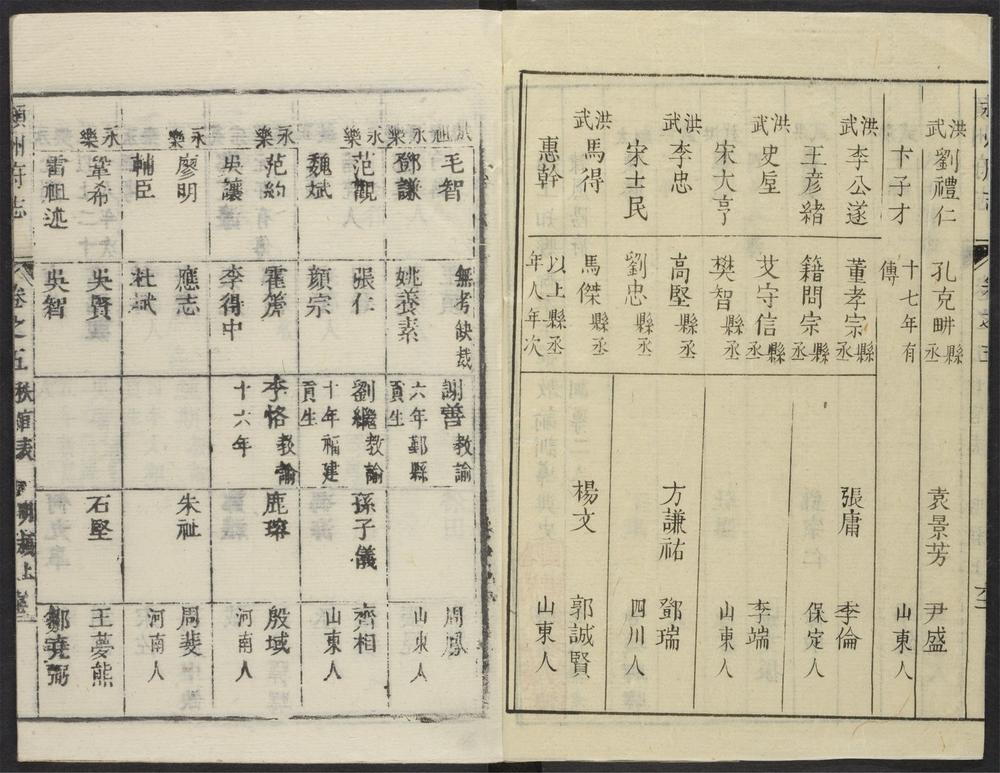 洪武 劉禮仁 孔克畊 縣丞 袁景芳 尹盛
卞子才 十七年有傳 山東人
洪武 李公遂 董孝宗 縣丞 張庸 李倫
王彥緒 籍問宗 縣丞 保定人
洪武 史垕 艾守信 縣丞 李端
宋大亨 樊智 縣丞 山東人
洪武 李忠 高堅 縣丞 方謙祐 鄧瑞
宋士民 劉忠 縣丞 四川人
洪武 馬得 馬傑 縣丞 楊文 郭誠賢
惠幹 以上縣丞年人年次 山東人
毛智 無考缺裁 謝善 教諭 周鳳
永樂 鄧謙 姚養素 六年鄞縣貢生 山東人
永樂 范觀 張仁 劉繼 教諭 孫子儀 齊相
魏斌 顏宗 十年福建貢生 山東人
永樂 范約 霍篪 李恪 教諭 鹿瑢 殷域
吳讓 李得中 十六年 河南人
永樂 廖明 應志 朱祉 周斐
輔臣 杜斌 河南人
永樂 鞏希 吳賢 石堅 王夢熊
雷祖述 吳智 鄒堯弼
潁州府志 卷之五 秩官表